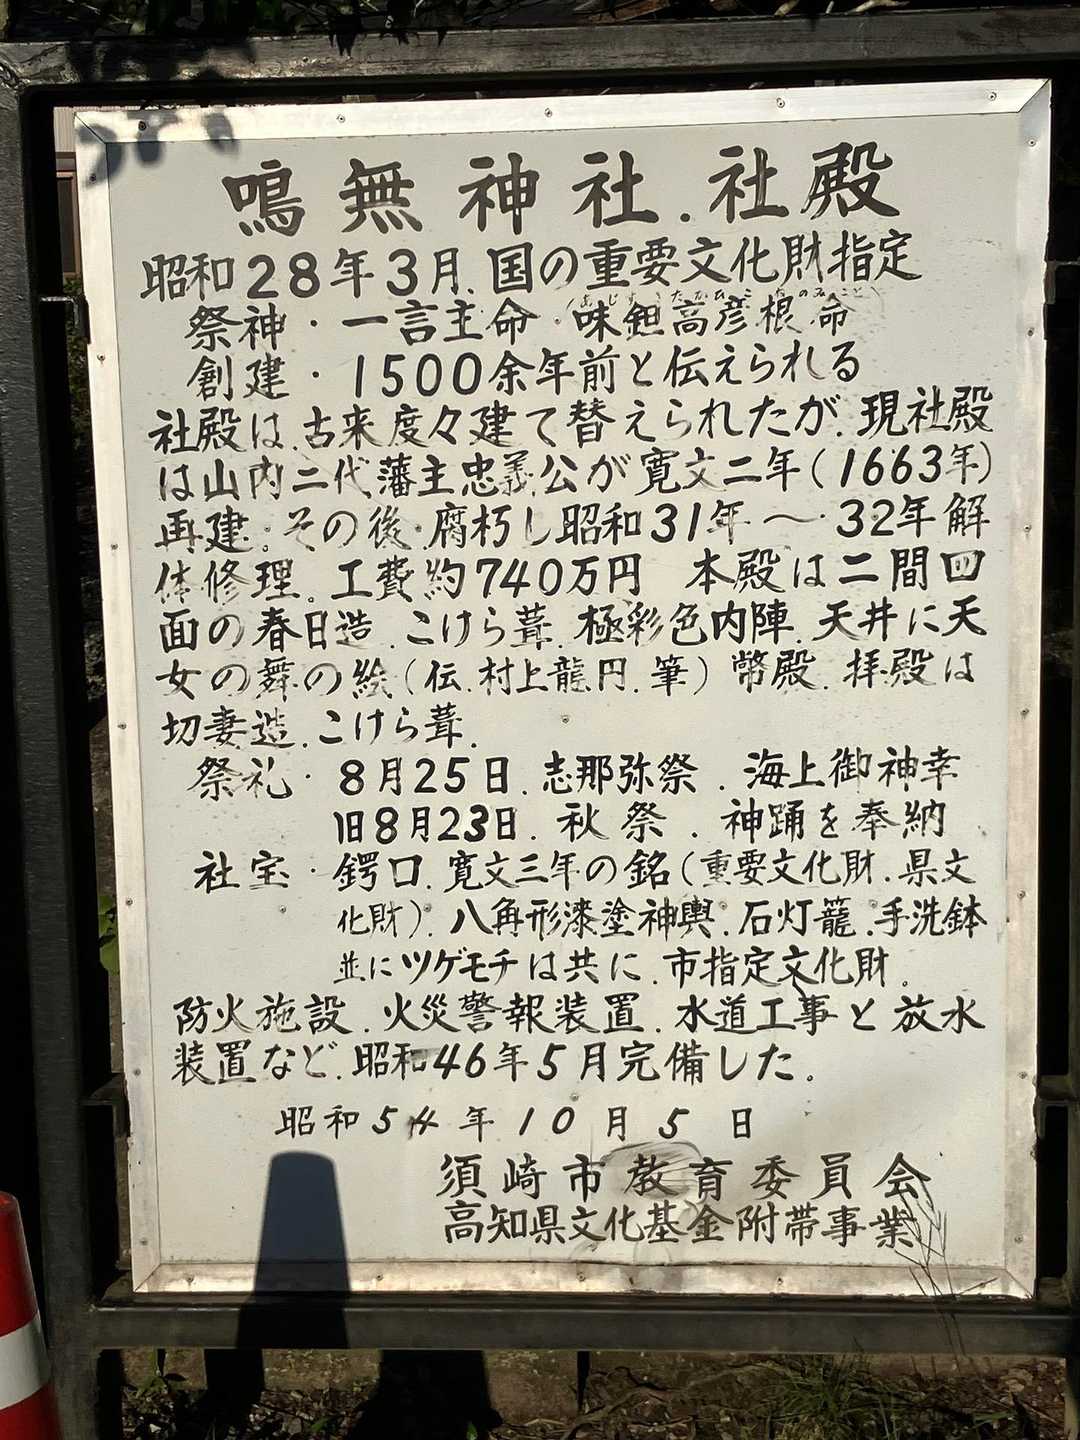 鳴無神社.社殿
昭和28年3月.国の重要文化財指定
祭神・一言主命・(味鉏高彦根命)
創建・1500余年前と伝えられる
社殿は.古来度々建て替えられたが.現社殿
は山内二代藩主忠義公が寛文二年(1663年)
再建.その後.腐朽し昭和31年〜32年解
体修理.工費約740万円 本殿は二間四
面の春日造.こけら葺.極彩色内陣.天井に天
女の舞の絵(伝.村上龍円.筆)幣殿.拝殿は
切妻造.こけら葺.
祭礼・8月25日.志那弥祭.海上御神幸
旧8月23日.秋祭.神踊を奉納
社宝・鍔口.寛文三年の銘(重要文化財.県文
化財).八角形漆塗神輿.石灯籠.手洗鉢
並にツゲモチは共に.市指定文化財.
防火施設.火災警報装置.水道工事と放水
装置など.昭和46年5月完備した.
昭和54年10月5日
須崎市教育委員会
高知県文化基金附帯事業